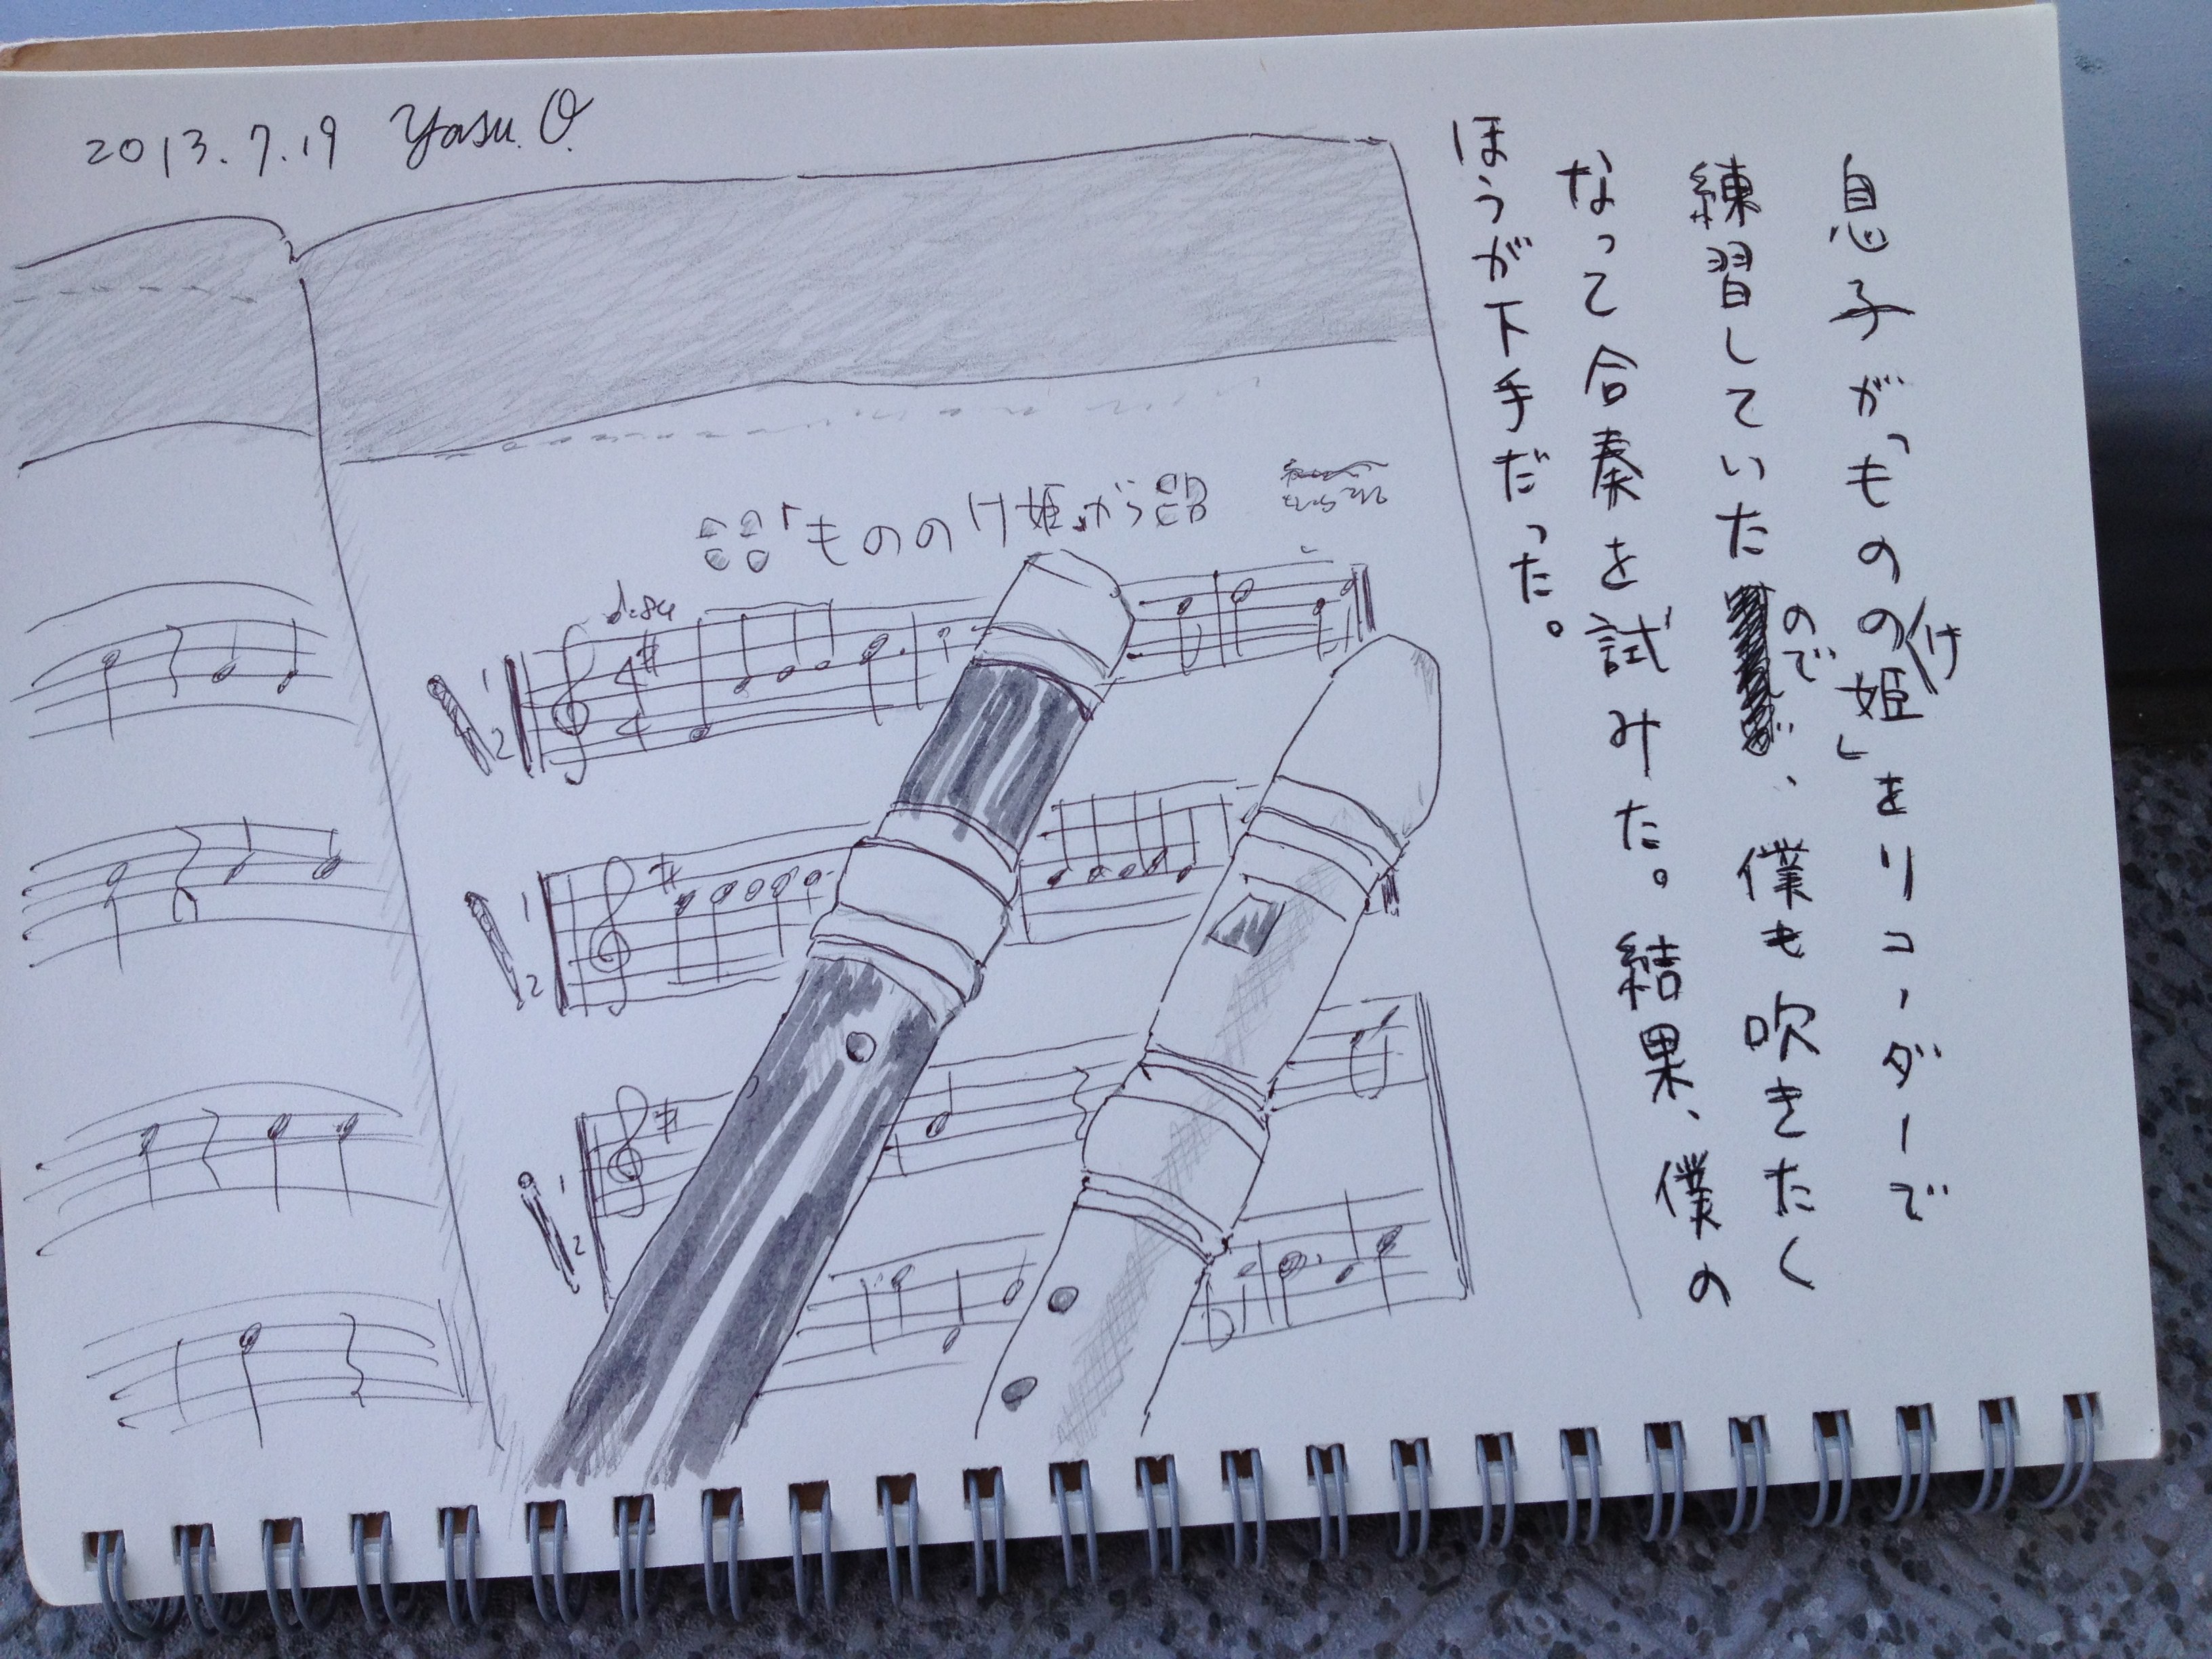 2013.7.19 Yasu.O.
息子が「もののけ姫」をリコーダーで
練習していたので、僕も吹きたく
なって合奏を試みた。結果、僕の
ほうが下手だった。
「もののけ姫」から
1
2
1
2
1
2